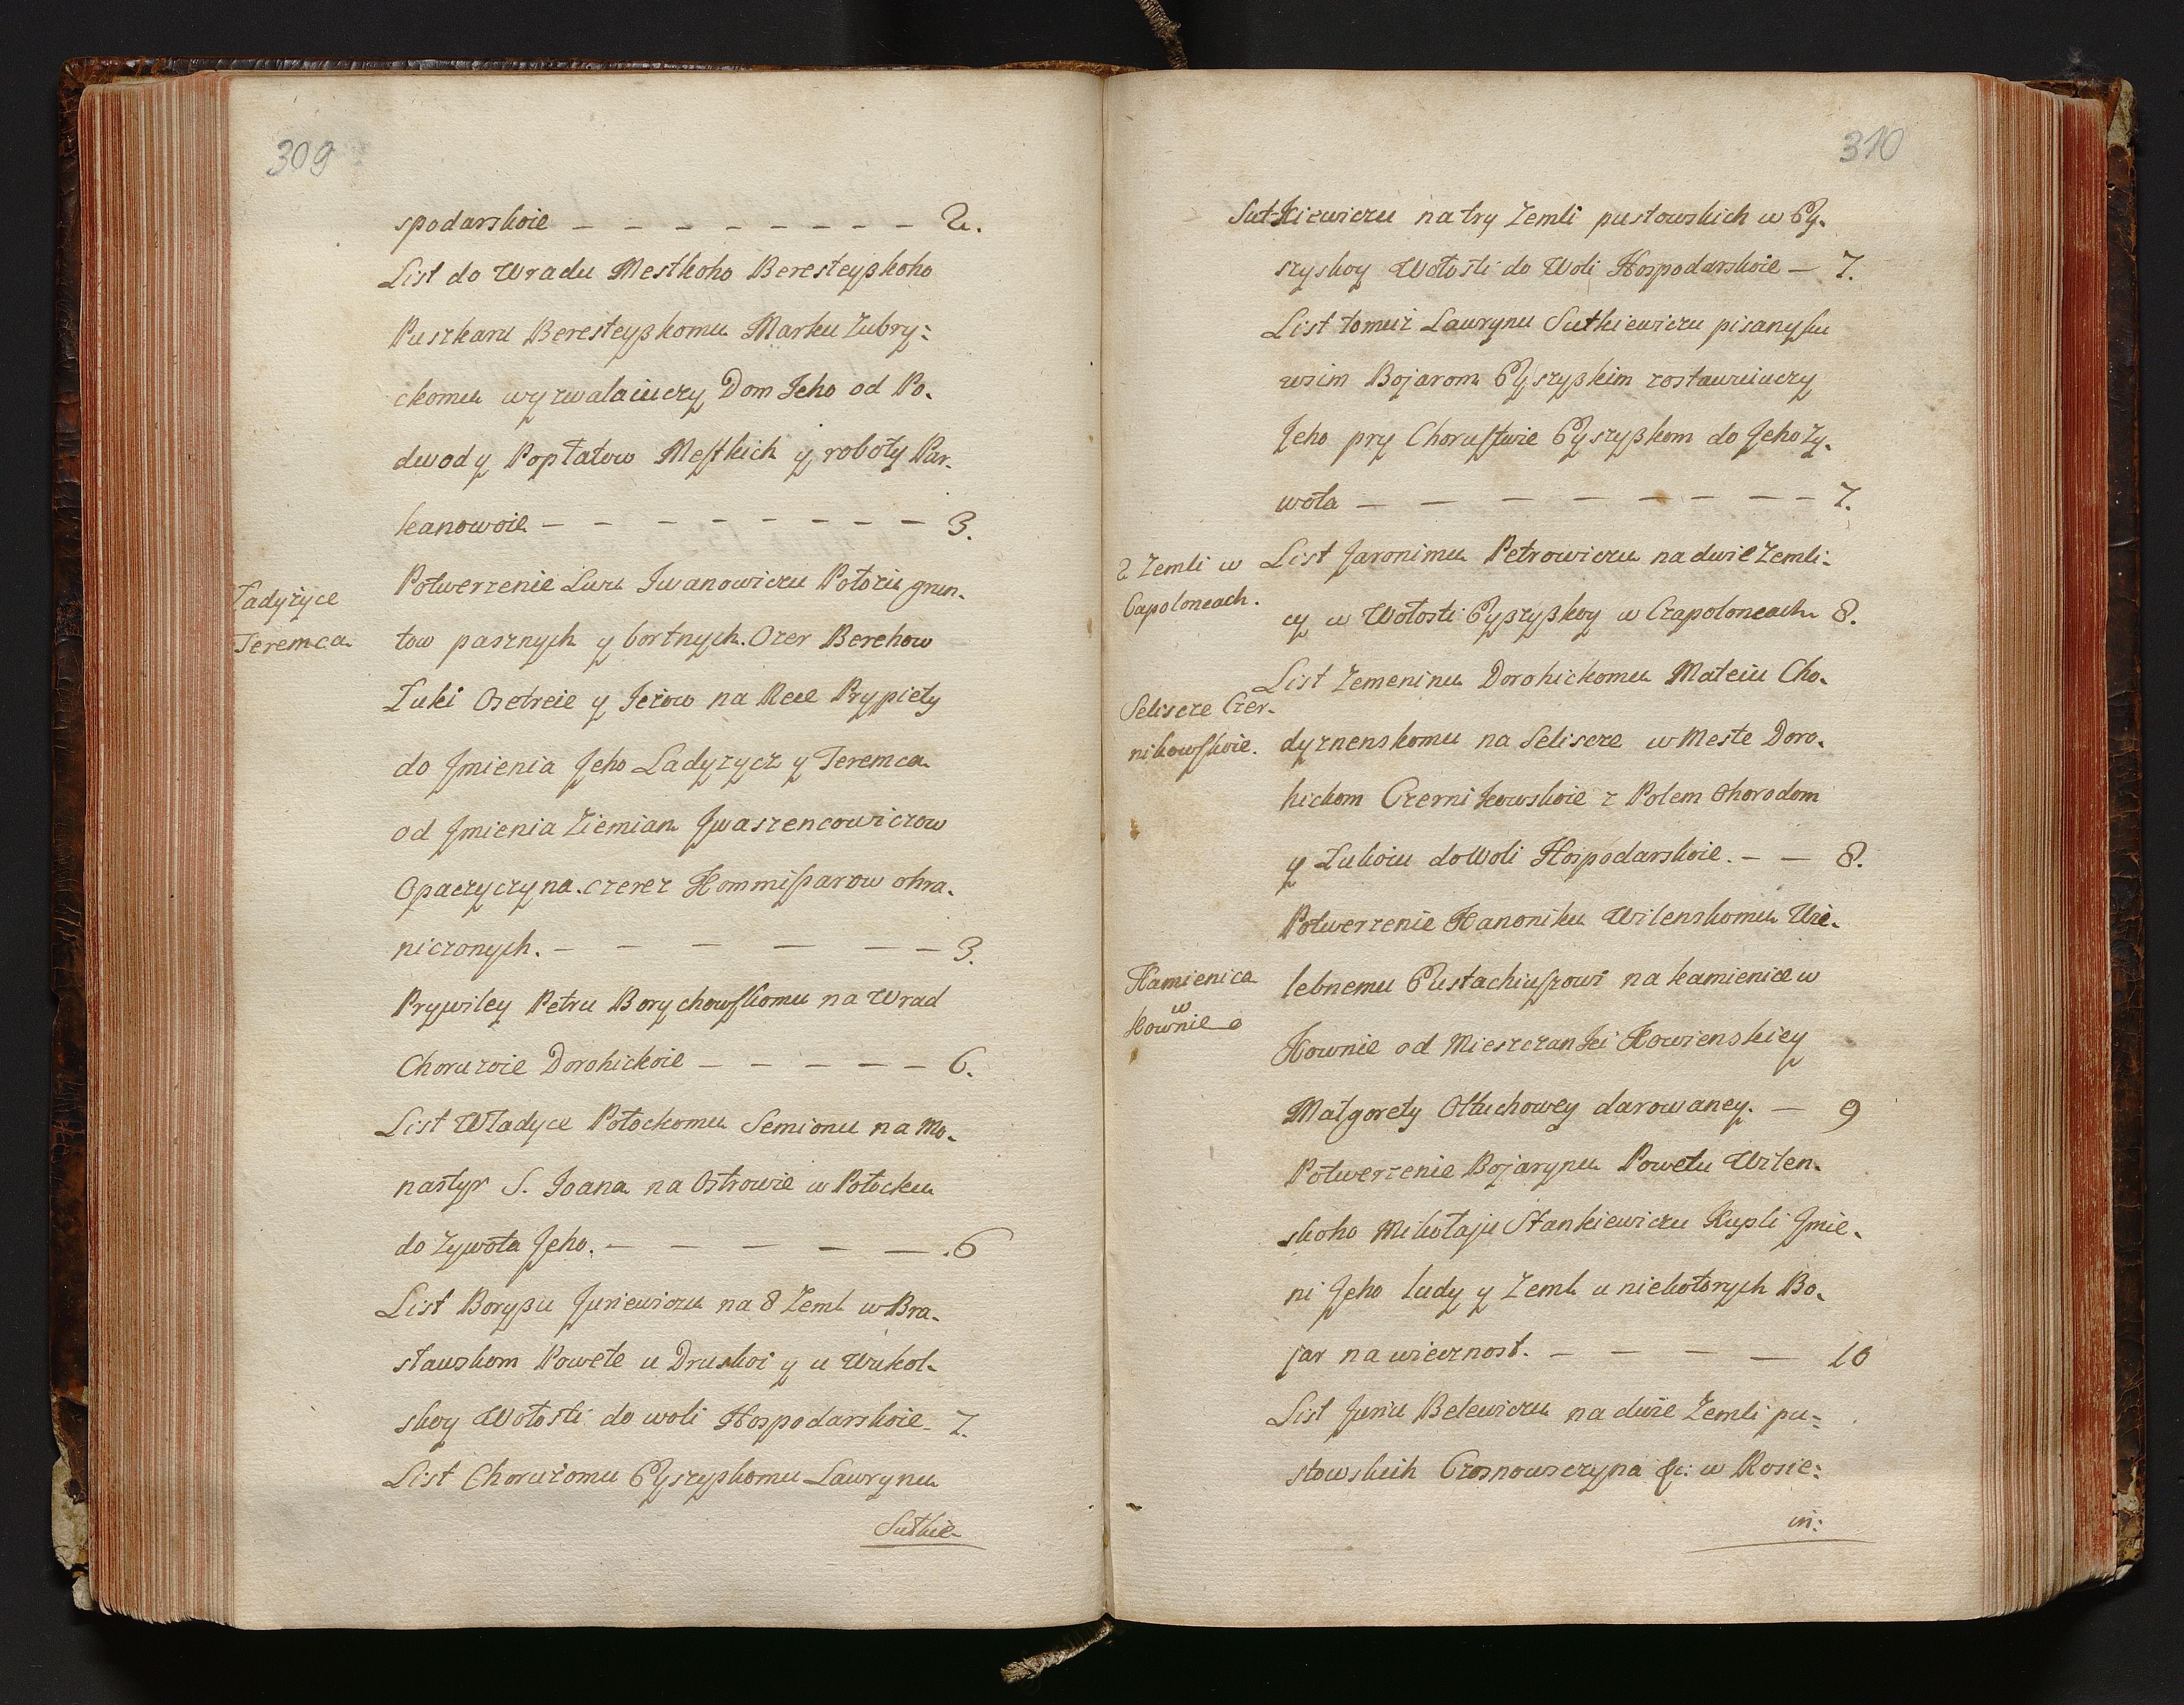 309
spodarskoie — — — — — — — — 2.
List do Wradu Mestkoho Beresteyßkoho
Puszkaru Beresteyßkomu Marku Zubry:
ckomu wyzwalaiuczy Dom Jeho od Po-
dwody Popłatow Mestkich y roboty Par-
kanowoie — — — — — — — — 3.
Ladyżyce
Teremca
Potwerzenie Luru Iwanowiczu Połoziu grun-
tow pasznych y bortnych. Ozer Berehow
Łuki Osetreie y Jezow na Rece Prypiety
do Jmienia Jeho Ladyzycz y Teremca
od Jmienia Ziemian Jwaszencowiczow
Opaczyczyna. czerez Kommissarow ohra-
niczonych. — — — — — — 3.
Prywiley Petru Borychowskomu na Wrad
Choruzoie Dorohickoie — — — — — 6.
List Władyce Połockomu Semionu na Mo-
nastyr S. Joana na Ostrowie w Połocku
do Zywota Jeho. — — — — — . 6
List Boryßu Juriewiczu na 8 Zeml w Bra-
sławskom Powete u Druskoi y u Wukol-
skoy Wołosti do woli Hospodarskoie - 7.
List Chorużomu Eyszyßkomu Lawrynu
Sutkie-
310
Sutkiewiczu na try Zemli pustowskich w Ey-
szyskoy Wołosti do Woli Hospodarskoie — 7.
List tomuż Lawrynu Sutkiewiczu pisany ku
wsim Bojarom Eyszyßkim zostawuiuczy
Jeho pry Chorustwie Eyszyßkom do Jeho Zy-
wota — — — — — — — — 7.
2 Zemli w
Capoloncach.
List Jaronimu Petrowiczu na dwie Zemli-
cy w Wołosti Eyszyßkoy w Czapoloncach 8.
Seliscze Czer-
nikowskoie.
List Zemeninu Dorohickomu Mateiu Cho-
dyznenskomu na Seliscze w Meste Doro-
hickom Czernikowskoie z Polem Ohorodom
y Łukoiu do Woli Hospodarskoie. — — 8.
Potwerzenie Kanoniku Wilenskomu Wie-
Kamienica
w
Kownie
lebnemu Eustachiuszowi na kamienice w
Kownie od Mieszczanki Kowienskiey
Małgorety Ottuchowey darowaney. — 9
Potwerzenie Bojarynu Powetu Wilen-
skoho Mikołaju Stankiewiczu Kupli Jmie-
ni Jeho ludy y Zeml u niekotorych Bo-
jar na wiecznost. — — — — 10
List Juriu Belewiczu na dwie Zemli pu:
stowskich Czosnowsczyna &c: w Rosie:
in: